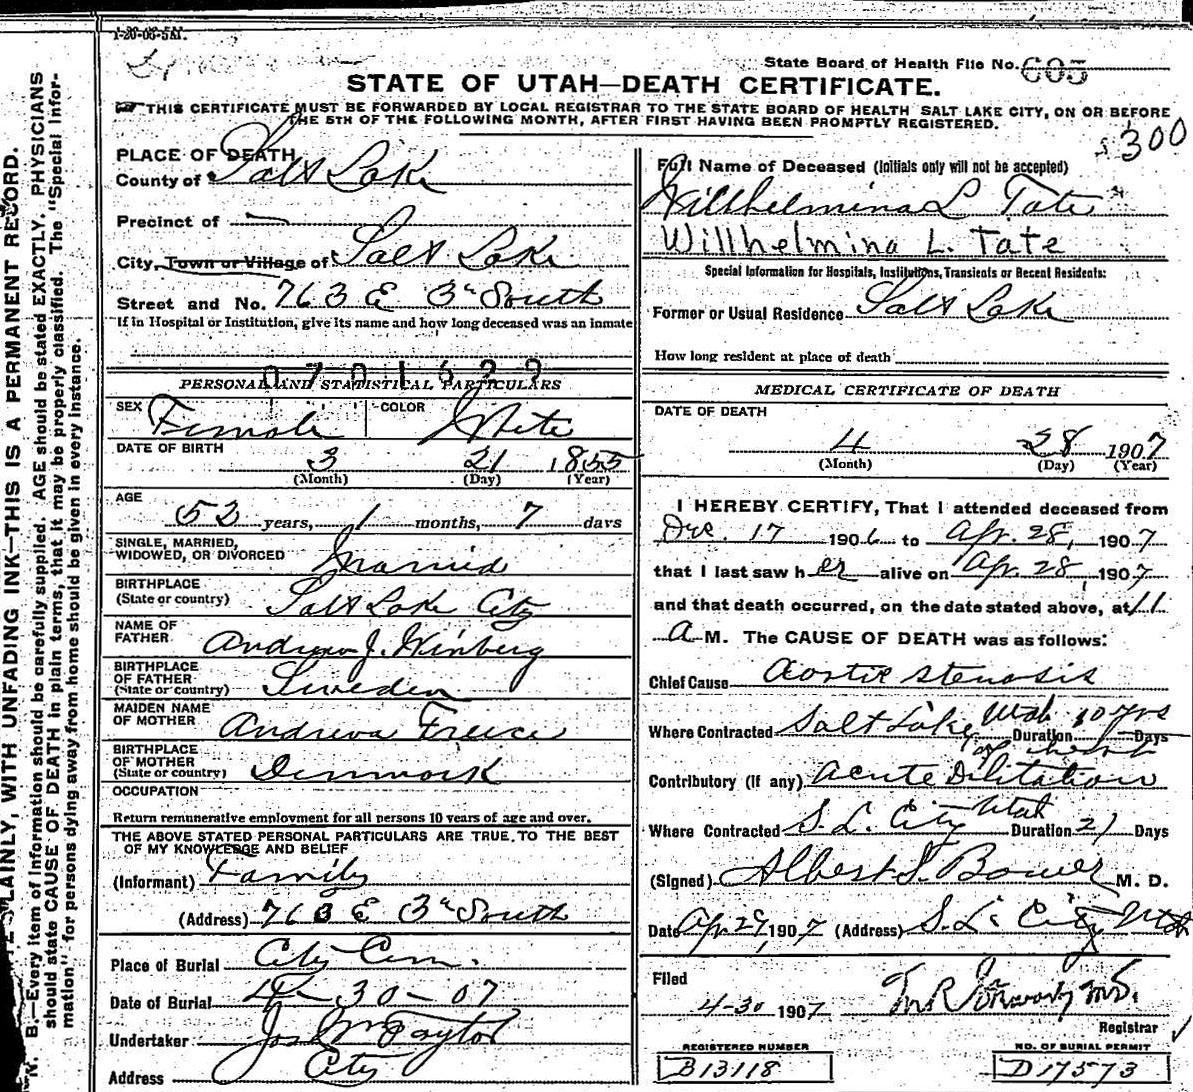 1-20-06-5M.
State Board of Health File No. 605
STATE OF UTAH—DEATH CERTIFICATE.
THIS CERTIFICATE MUST BE FORWARDED BY LOCAL REGISTRAR TO THE STATE BOARD OF HEALTH SALT LAKE CITY, ON OR BEFORE
THE 5TH OF THE FOLLOWING MONTH, AFTER FIRST HAVING BEEN PROMPTLY REGISTERED.
300
PLACE OF DEATH
County of Salt Lake
Precinct of —
City, Town or Village of Salt Lake
Street and No. 763 E 3d South
If in Hospital or Institution, give its name and how long deceased was an inmate
0701622
PERSONAL AND STATISTICAL PARTICULARS
SEX Female COLOR White
DATE OF BIRTH
3 21 1855
(Month) (Day) (Year)
AGE
52 years, 1 months, 7 days
SINGLE, MARRIED,
WIDOWED, OR DIVORCED Married
BIRTHPLACE
(State or country) Salt Lake City
NAME OF
FATHER Andrew J. Winberg
BIRTHPLACE
OF FATHER
(State or country) Sweden
MAIDEN NAME
OF MOTHER Andrewa
BIRTHPLACE
OF MOTHER
(State or country) Denmark
OCCUPATION
Return remunerative employment for all persons 10 years of age and over.
THE ABOVE STATED PERSONAL PARTICULARS ARE TRUE TO THE BEST
OF MY KNOWLEDGE AND BELIEF
(Informant) Family
(Address) 763 E 3d South
Place of Burial City Cem.
Date of Burial 30-07
Undertaker Jos Wm Taylor
Address City
Full Name of Deceased (Initials only will not be accepted)
Willhelmina L Tate
Willhelmina L. Tate
Special Information for Hospitals, Institutions, Transients or Recent Residents:
Former or Usual Residence Salt Lake
How long resident at place of death
MEDICAL CERTIFICATE OF DEATH
DATE OF DEATH
4 28 1907
(Month) (Day) (Year)
I HEREBY CERTIFY, That I attended deceased from
Dec. 17 1906 to Apr. 28, 1907
that I last saw her alive on Apr. 28, 1907
and that death occurred, on the date stated above, at 11
A M. The CAUSE OF DEATH was as follows:
Chief Cause Aortic Stenosis
Where Contracted Salt Lake, Utah Duration 10 yrs Days
of heart
Contributory (if any) Acute Dilitation
Where Contracted S. L. City Utah Duration 21 Days
(Signed) Albert S. Bower M. D.
Date Apr. 29, 1907 (Address) S. L. City Utah
Filed
4-30 1907
Registrar
REGISTERED NUMBER
B13118
NO. OF BURIAL PERMIT
D17573
PLAINLY, WITH UNFADING INK—THIS IS A PERMANENT RECORD.
N. B.—Every item of information should be carefully supplied. AGE should be stated EXACTLY. PHYSICIANS
should state CAUSE OF DEATH in plain terms, that it may be properly classified. The "Special Infor-
mation" for persons dying away from home should be given in every instance.